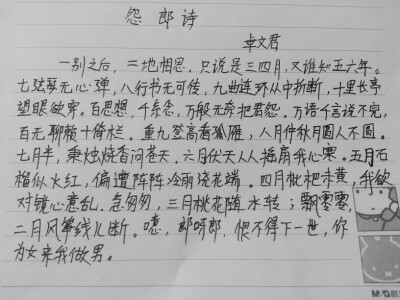 怨郎诗
卓文君
一别之后，二地相思，只说是三四月，又谁知五六年。
七弦琴无心弹，八行书无可传，九曲连环从中折断，十里长亭
望眼欲穿。百思想，千系念，万般无奈把君怨。万语千言说不完，
百无聊赖十倚栏。重九登高看孤雁，八月仲秋月圆人不圆。
七月半，秉烛烧香问苍天，六月伏天人人摇扇我心寒。五月石
榴似火红，偏遭阵阵冷雨浇花端。四月枇杷未黄，我欲
对镜心意乱。急匆匆，三月桃花随水转；飘零零，
二月风筝线儿断。噫，郎呀郎，恨不得下一世，你
为女来我做男。
M&G